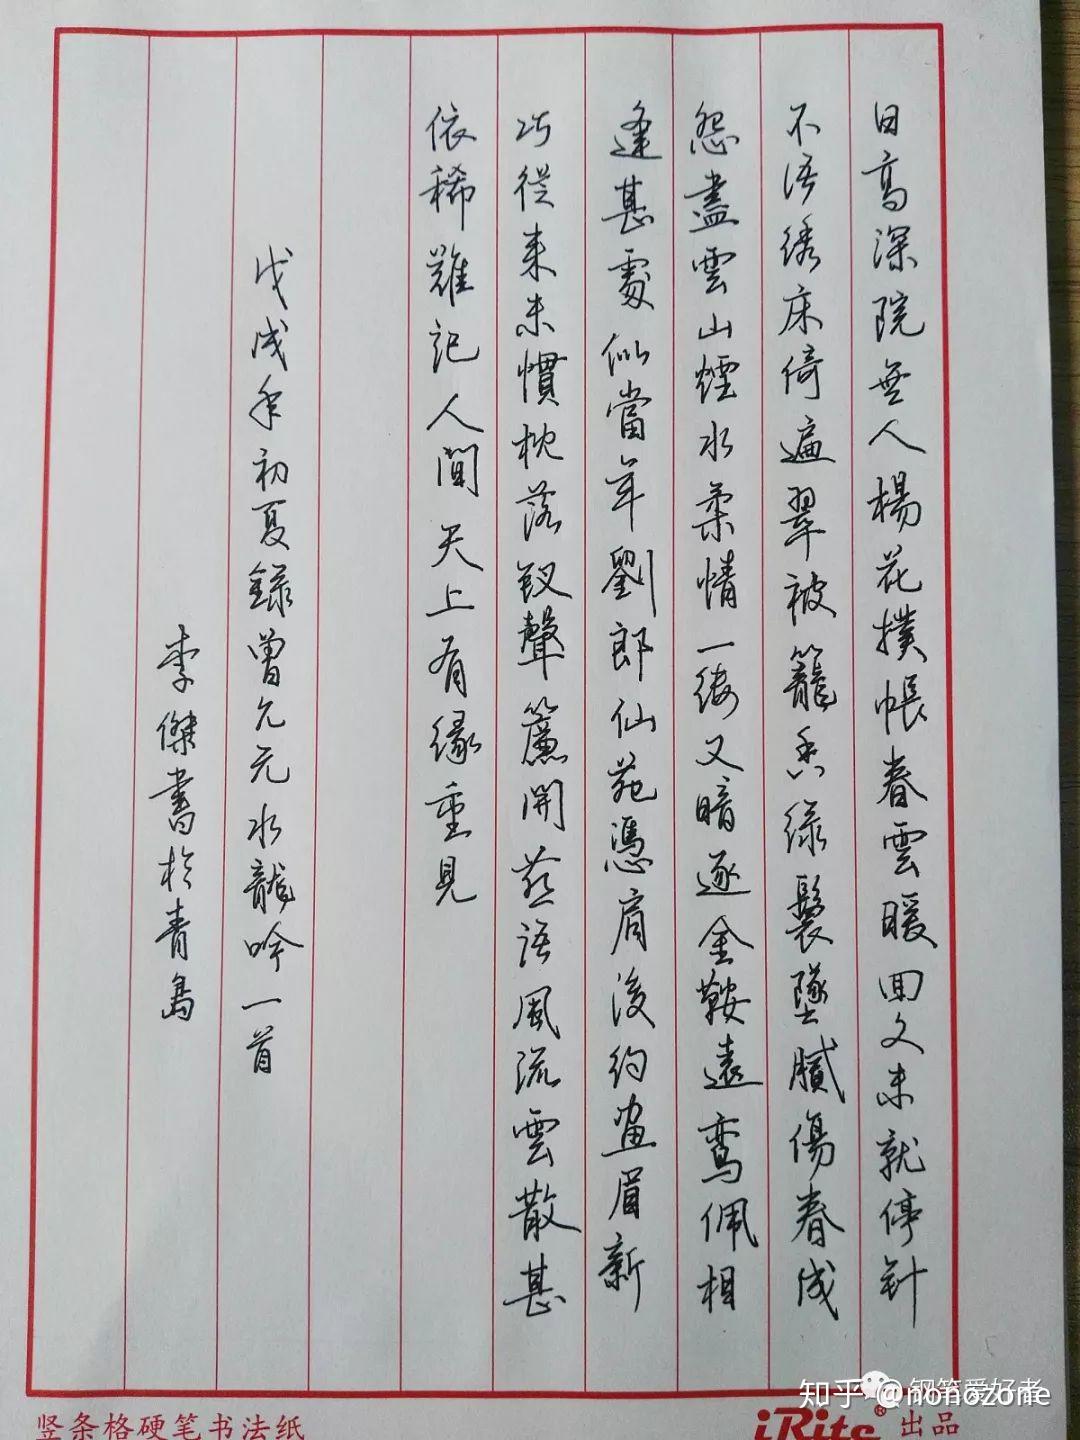 日高深院無人楊花撲帳春雲暖回文未就停針
不語绣床倚遍翠被籠香綠鬟墜膩傷春成
怨盡雲山煙水柔情一缕又暗逐金鞍遠鸾佩相
逢甚處似當年劉郎仙苑憑肩後約畫眉新
巧從來未慣枕落釵聲簾開燕語風流雲散甚
依稀難記人間天上有緣重見
戊戌年初夏録曾允元水龍吟一首
李傑書於青島
竖条格硬笔书法纸
iRite® 出品
钢笔爱好者
知乎 @nonozone